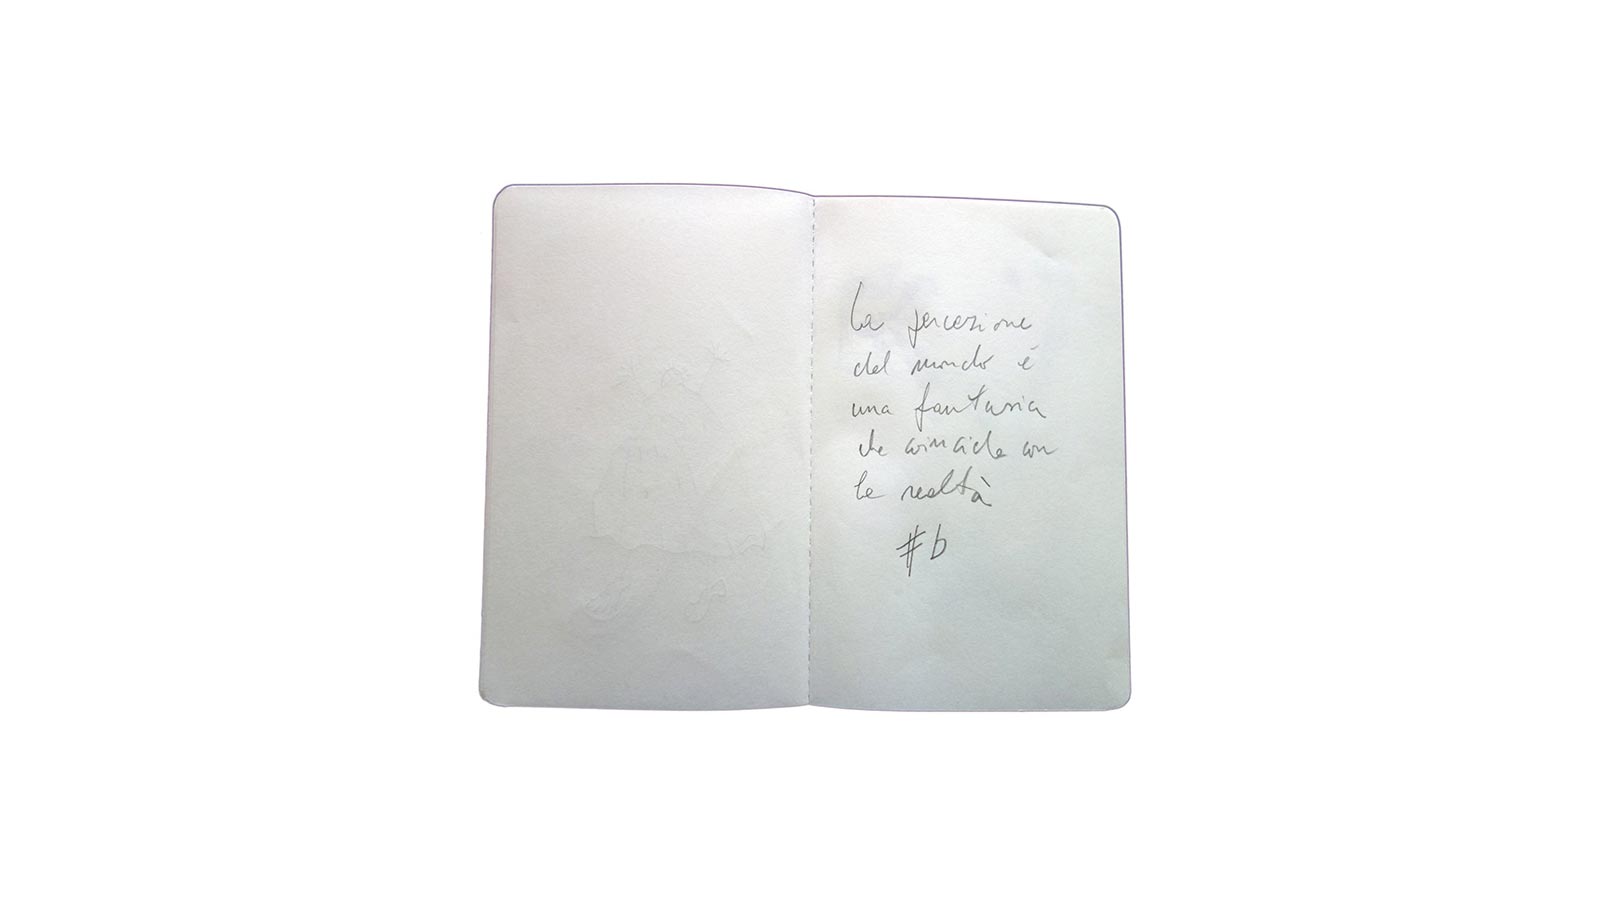 La percezione
del mondo è
una fantasia
che coincide con
la realtà
#b